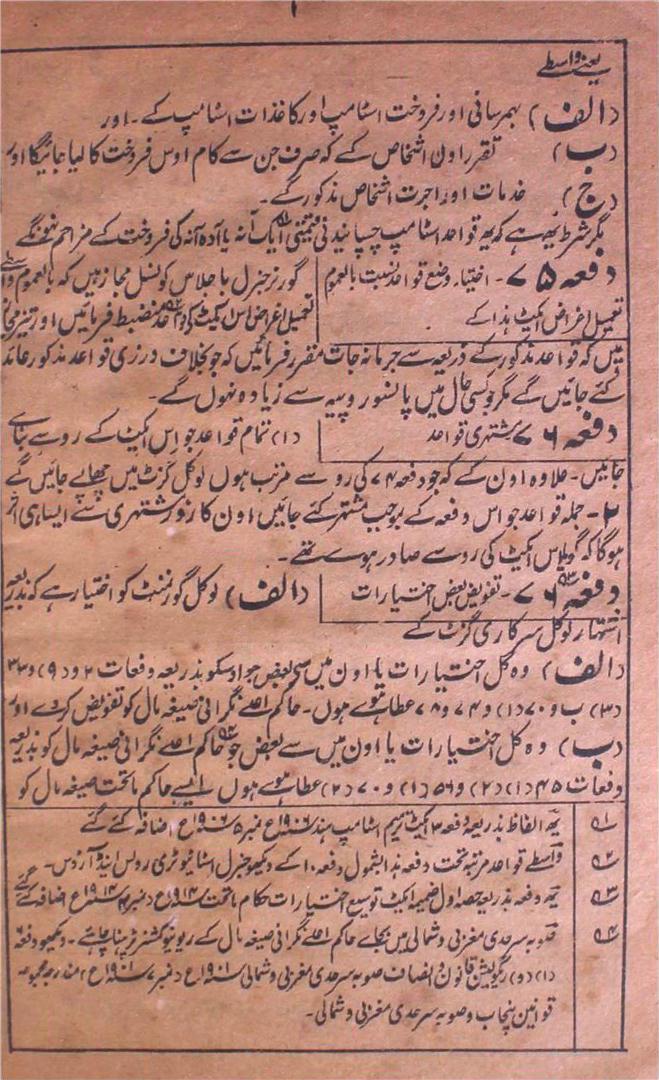 یعنے واسطے
(الف) بہمرسانی اور فروخت اسٹامپ اور کاغذات اسٹامپ کے ۔ اور
(ب) تقرر اون اشخاص کے کہ صرف جن سے کام اوس فروخت کا لیا جائیگا اور
(ج) خدمات اور اجرت اشخاص مذکور کے ۔
مگر شرط یہ ہے کہ یہ قواعد اسٹامپ چسپانیدنی قیمتی ایک آنہ یا آدہ آنہ کی فروخت کے مزاحم نہونگے
دفعہ ۷۵ ۔ اختیار وضع قواعد نسبت بالعموم
تعمیل اغراض ایکٹ ہذا کے
گورنر جنرل باجلاس کونسل مجاز ہیں کہ بالعموم واسطے
تعمیل اغراض اس ایکٹ کے قواعد منضبط فرمائیں اور نیز مجاز
ہیں کہ قواعد مذکور کے ذریعہ سے جرمانہ جات مقرر فرمائیں کہ جو بخلاف ورزی قواعد مذکور عائد
کئے جائیں گے مگر جو کسی حال میں پانسور وپیہ سے زیادہ نہوں گے ۔
دفعہ ۷۶ مشتہری قواعد
(۱) تمام قواعد جو اس ایکٹ کے روسے بنائے
جائیں ۔ علاوہ اون کے کہ جو دفعہ ۷۴ کی رو سے مرتب ہوں لوکل گزٹ میں چھاپے جائیں گے
۲ ۔ جملہ قواعد جو اس دفعہ کے بموجب مشتہر کئے جائیں اون کا زور مشتہری سے ایسا ہی اثر
ہوگا کہ گویا اس ایکٹ کی روسے صادر ہوے تھے ۔
دفعہ ۷۶ ۔ تفویض بعض اختیارات
(الف) لوکل گورنمنٹ کو اختیار ہے کہ بذریعہ
اشتہار لوکل سرکاری گزٹ کے
(الف) وہ کل اختیارات یا اون میں سے بعض جو اوسکو بذریعہ دفعات ۲ و (۹) و ۳۳
(۳) ب و ۷۰ (۱) و ۷۴ و ۷۸ عطا ہوے ہوں ۔ حاکم اعلے نگرانی صیغہ مال کو تفویض کرے اور
(ب) وہ کل اختیارات یا اون میں سے بعض جو حاکم اعلے نگرانی صیغہ مال کو بذریعہ
دفعات ۴۵ (۱) (۲) و ۵۶ (۱) و ۷۰ (۲) عطا ہوے ہوں ایسے حاکم ماتحت صیغہ مال کو
۱ یہ الفاظ بذریعہ دفعہ ۳ ایکٹ ترمیم اسٹامپ ہند ۱۹۰۶ع نمبر ۵ ۱۹۰۶ع اضافہ کئے گئے
۲ واسطے قواعد مرتبہ تحت دفعہ ہذا بشمول دفعہ ۱۰ کے دیکھو جنرل اسٹاچیوٹری رولس اینڈ آرڈرس ۔
۳ یہ دفعہ بذریعہ حصہ اول ضمیمہ ایکٹ توسیع اختیارات حکام ماتحت ۱۹۱۴ع (نمبر ۴ ۱۹۱۴ع) اضافہ کئے گئے
۴ صوبہ سرحدی مغربی و شمالی میں بجائے حاکم اعلے نگرانی صیغہ مال کے ریونیو کمشنر پڑہنا چاہئے ۔ دیکھو دفعہ ۶
(۱) (و) ریگولیشن قانون و انصاف صوبہ سرحدی مغربی و شمالی ۱۹۰۱ع (نمبر ۷ ۱۹۰۱ع) مندرجہ مجموعہ
قوانین پنجاب و صوبہ سرحدی مغربی و شمالی ۔